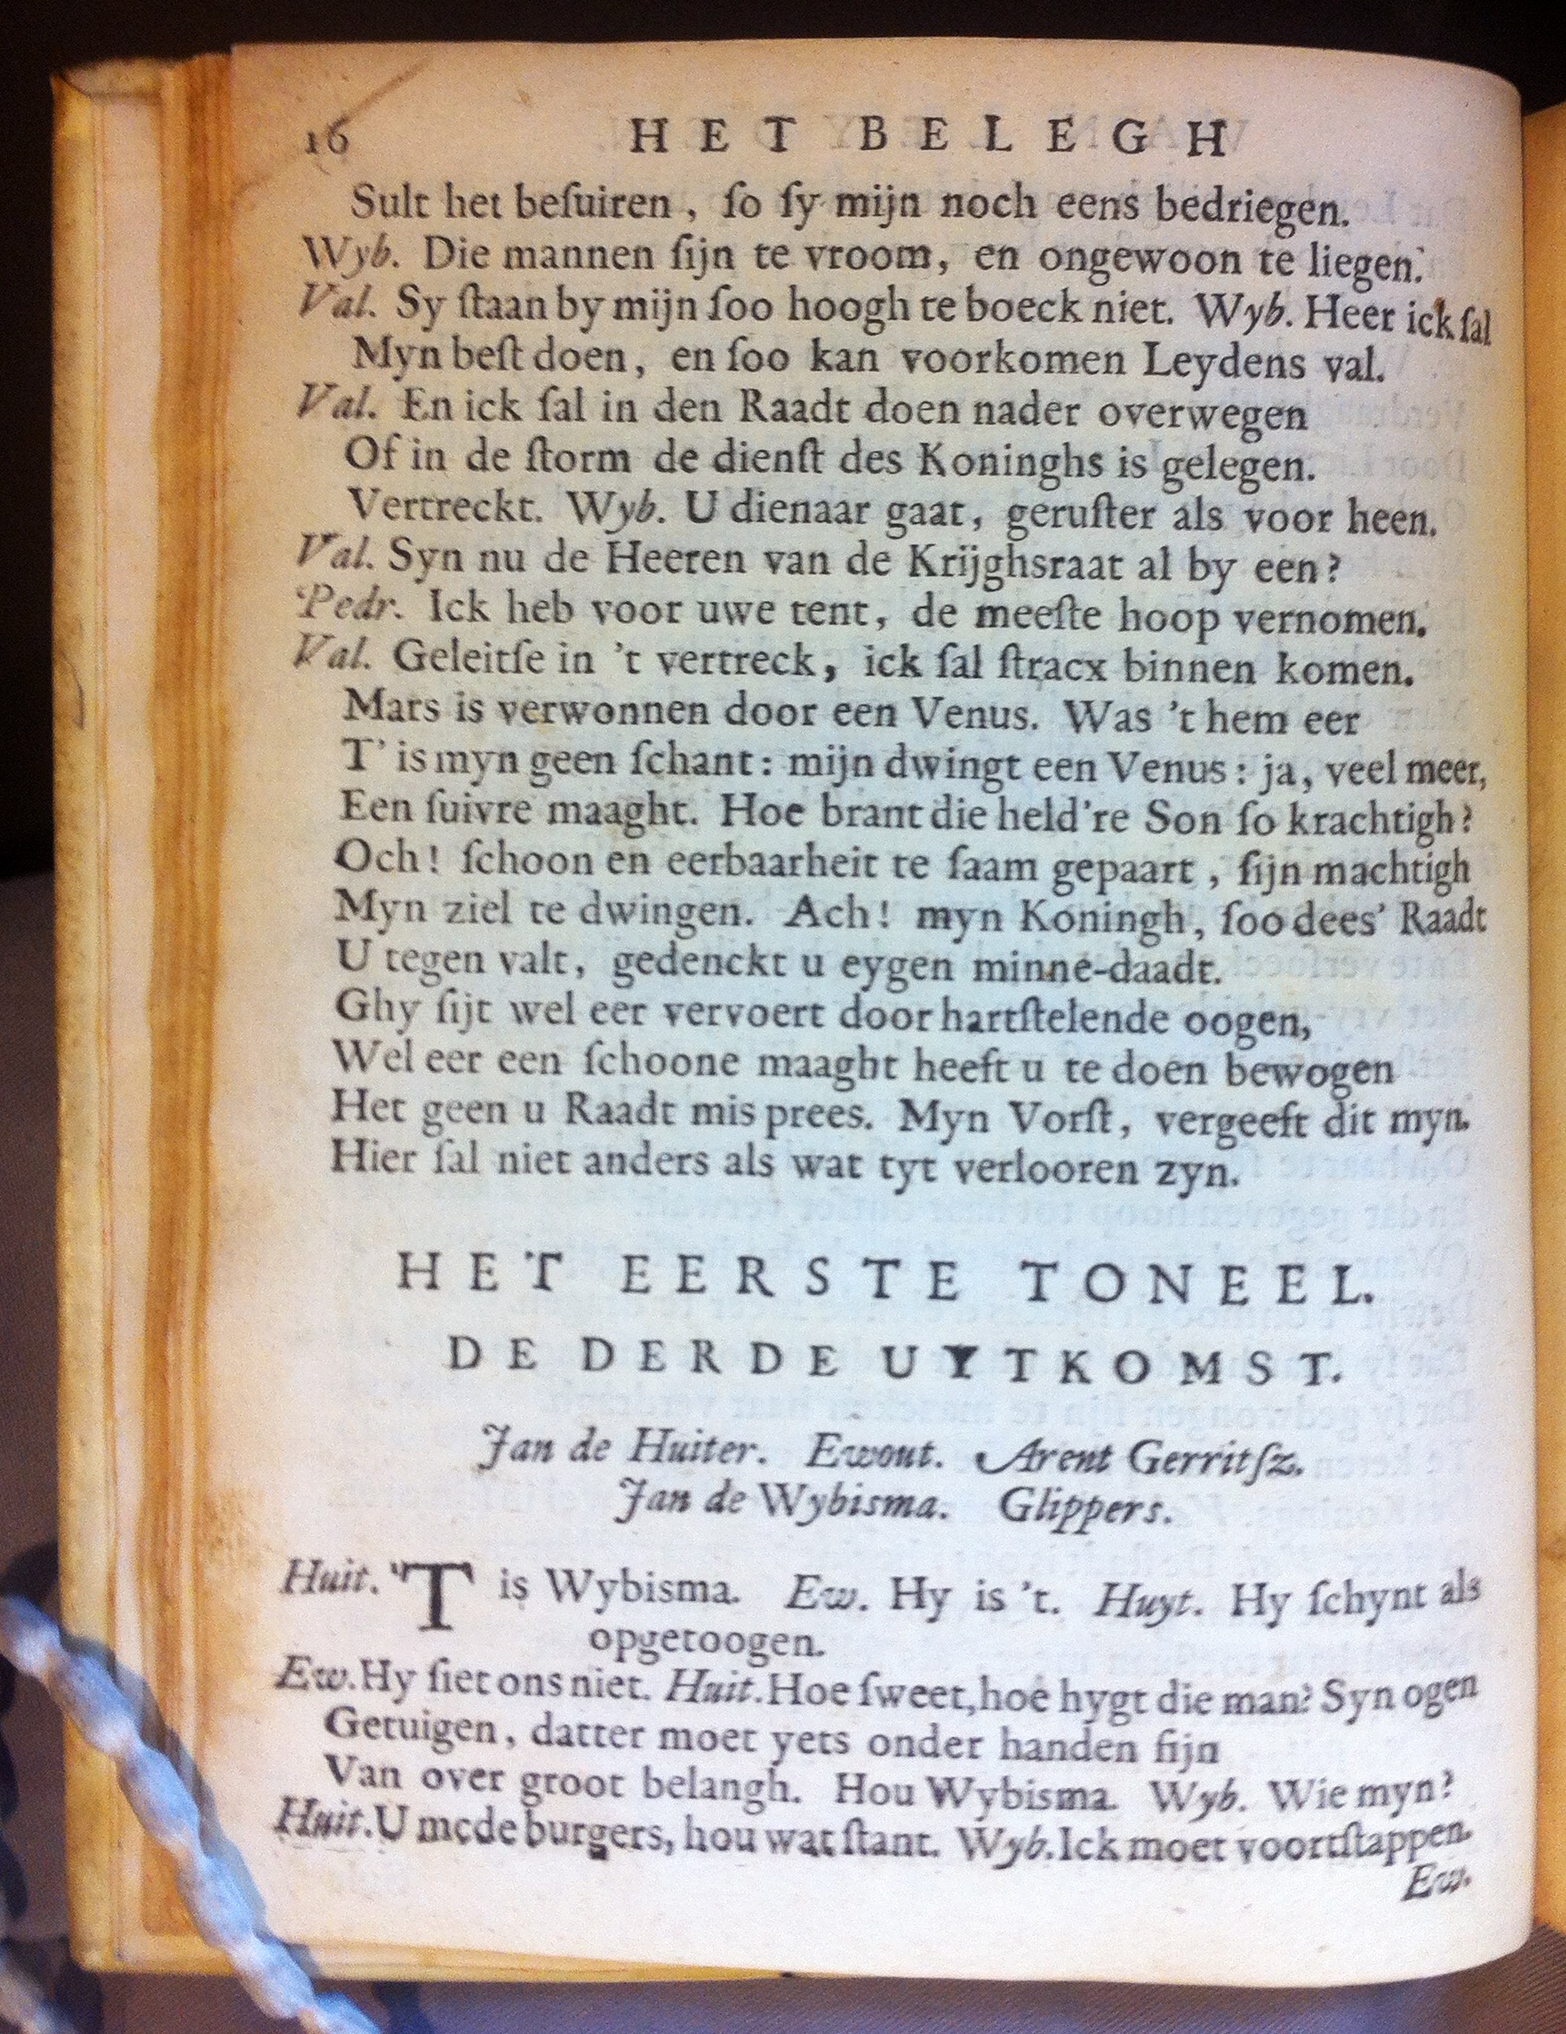 16 HET BELEGH
Sult het beſuiren, ſo ſy mijn noch eens bedriegen.
Wyb. Die mannen ſijn te vroom, en ongewoon te liegen.
Val. Sy ſtaan by mijn ſoo hoogh te boeck niet. Wyb. Heer ick ſal
Myn beſt doen, en ſoo kan voorkomen Leydens val.
Val. En ick ſal in den Raadt doen nader overwegen
Of in de ſtorm de dienſt des Koninghs is gelegen.
Vertreckt. Wyb. U dienaar gaat, geruſter als voor heen.
Val. Syn nu de Heeren van de Krijghsraat al by een?
Pedr. Ick heb voor uwe tent, de meeſte hoop vernomen.
Val. Geleitſe in 't vertreck, ick ſal ſtracx binnen komen.
Mars is verwonnen door een Venus. Was 't hem eer
T' is myn geen ſchant: mijn dwingt een Venus: ja, veel meer,
Een ſuivre maaght. Hoe brant die held're Son ſo krachtigh?
Och! ſchoon en eerbaarheit te ſaam gepaart, ſijn machtigh
Myn ziel te dwingen. Ach! myn Koningh, ſoo dees' Raadt
U tegen valt, gedenckt u eygen minne-daadt.
Ghy ſijt wel eer vervoert door hartſtelende oogen,
Wel eer een ſchoone maaght heeft u te doen bewogen
Het geen u Raadt mis prees. Myn Vorſt, vergeeft dit myn.
Hier ſal niet anders als wat tyt verlooren zyn.
HET EERSTE TONEEL.
DE DERDE UYTKOMST.
Jan de Huiter. Ewout. Arent Gerritſz.
Jan de Wybisma. Glippers.
Huit. 'T is Wybisma. Ew. Hy is 't. Huyt. Hy ſchynt als
opgetoogen.
Ew. Hy ſiet ons niet. Huit. Hoe ſweet, hoe hygt die man? Syn ogen
Getuigen, datter moet yets onder handen ſijn
Van over groot belangh. Hou Wybisma. Wyb. Wie myn?
Huit. U mede burgers, hou wat ſtant. Wyb. Ick moet voortſtappen.
Ew.